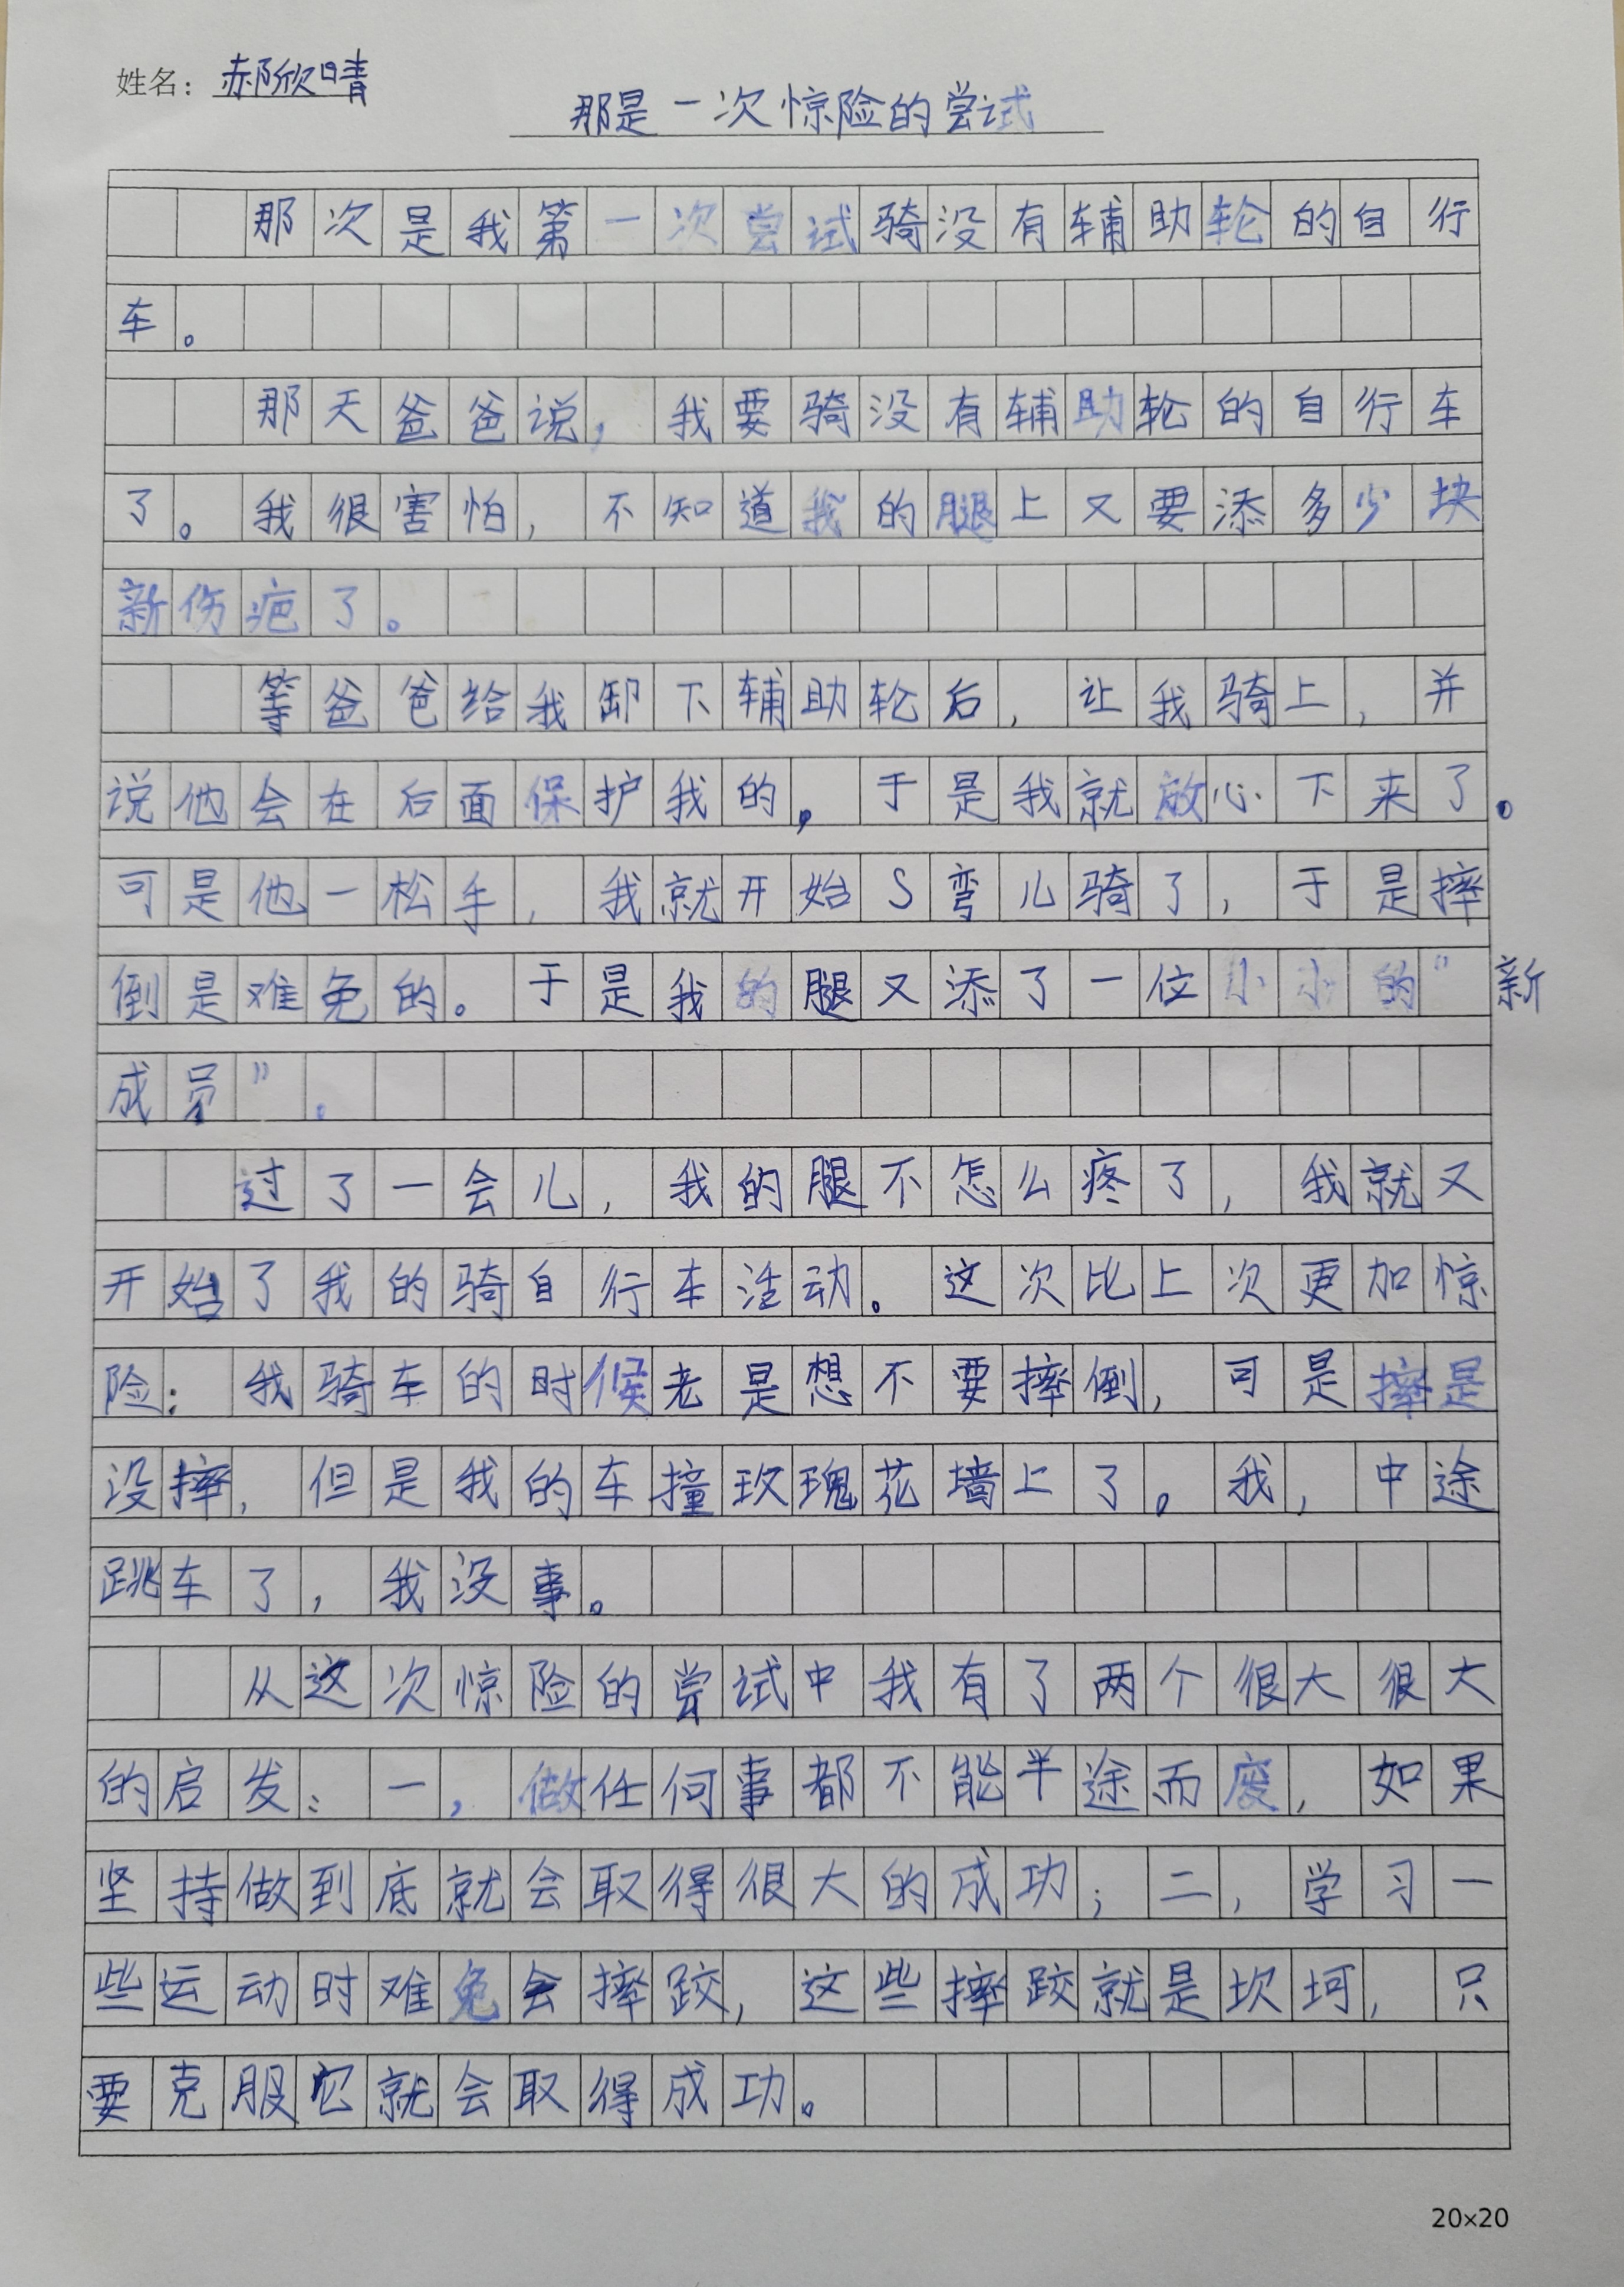 姓名：郝欣晴
那是一次惊险的尝试
那次是我第一次尝试骑没有辅助轮的自行
车。
那天爸爸说，我要骑没有辅助轮的自行车
了。我很害怕，不知道我的腿上又要添多少块
新伤疤了。
等爸爸给我卸下辅助轮后，让我骑上，并
说他会在后面保护我的，于是我就放心下来了。
可是他一松手，我就开始S弯儿骑了，于是摔
倒是难免的。于是我的腿又添了一位小小的“新
成员”。
过了一会儿，我的腿不怎么疼了，我就又
开始了我的骑自行车活动。这次比上次更加惊
险：我骑车的时候老是想不要摔倒，可是摔是
没摔，但是我的车撞玫瑰花墙上了。我，中途
跳车了，我没事。
从这次惊险的尝试中我有了两个很大很大
的启发：一，做任何事都不能半途而废，如果
坚持做到底就会取得很大的成功；二，学习一
些运动时难免会摔跤，这些摔跤就是坎坷，只
要克服它就会取得成功。
20×20